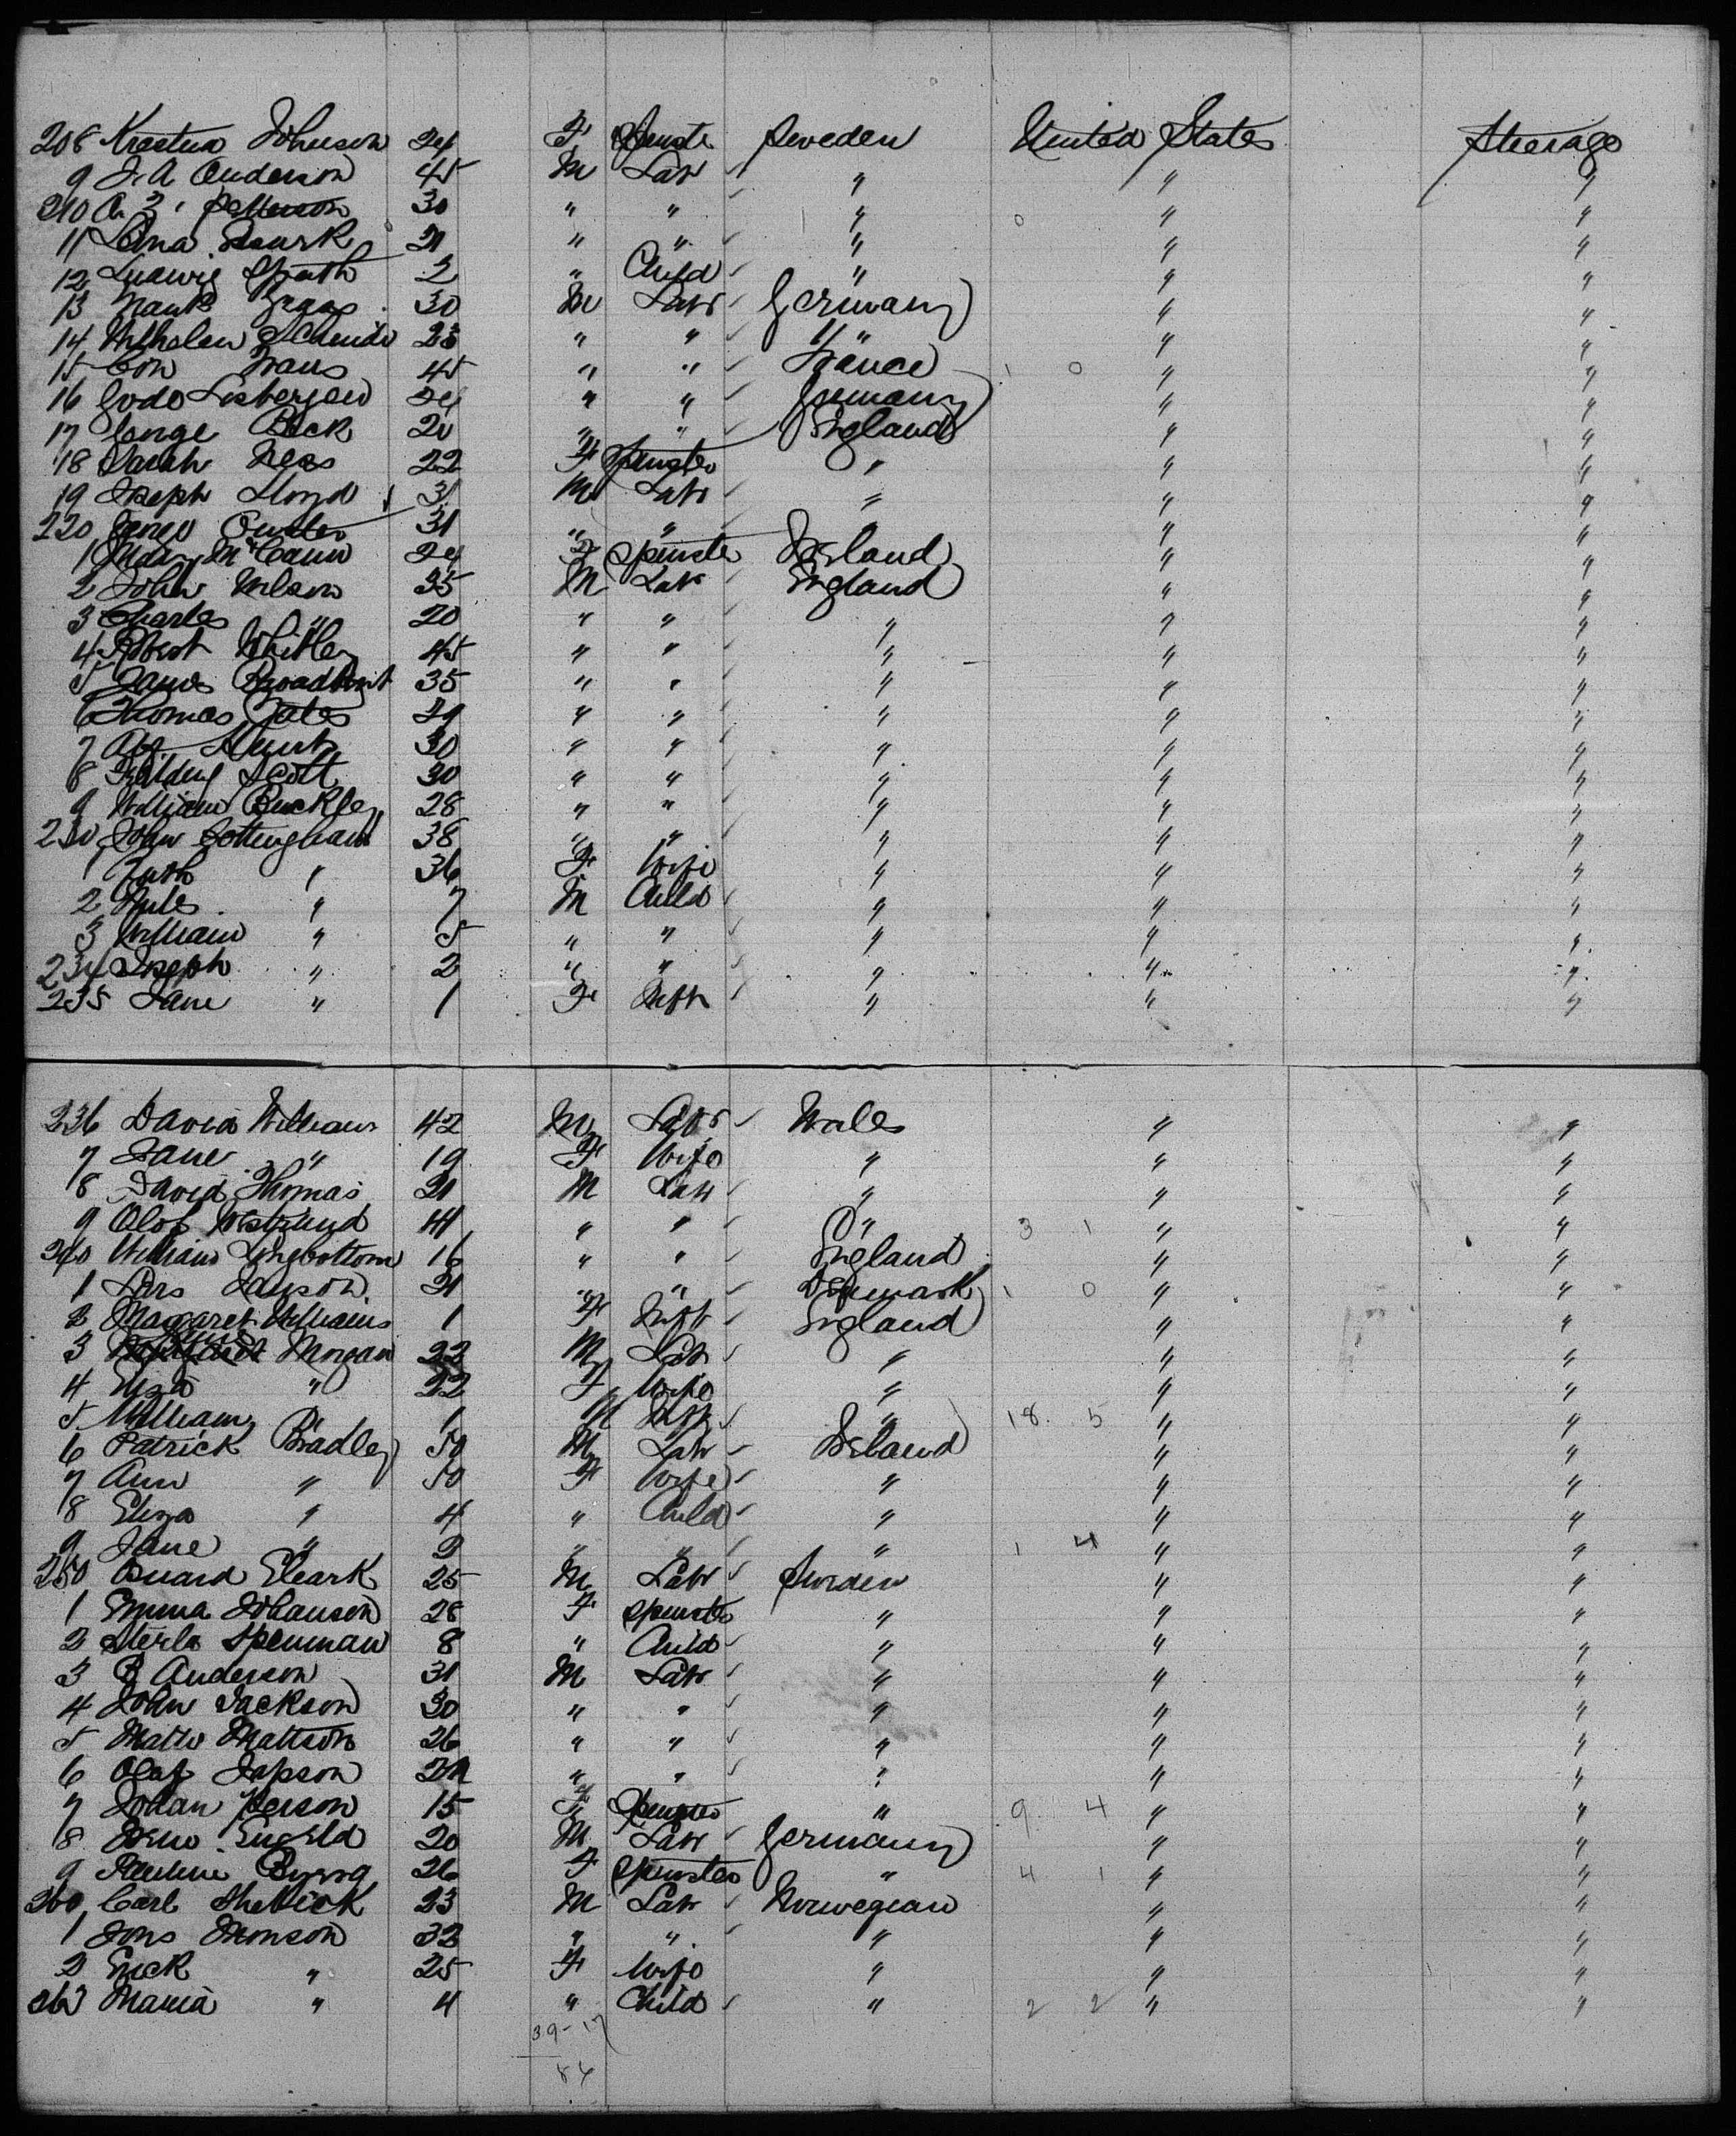 208 Krastina Johnson 24 F Spinstr Sweden United States Steerage
9 J. A Anderson 45 M Labr " " "
210 A. 3. Petterson 30 " " " " "
11 Lena 21 " " " " "
12 Ludwig Spath 2 " Child " " "
13 30 M Labr Germany " "
14 Wilhelm 23 " " " " "
15 Con Frans 45 " " France " "
16 24 " " Germany " "
17 George Beck 20 " " England " "
18 Sarah 22 F Spinster " " "
19 Joseph Lloyd 31 M Labr " " "
220 31 " " " " "
1 Mary McCann 24 F Spinste Ireland " "
2 John Wilson 35 M Labr England " "
3 Charles " 20 " " " " "
4 Robert Whitley 45 " " " " "
5 James Broadbent 35 " " " " "
6 Thomas Yates 29 " " " " "
7 Alf Hunt 30 " " " " "
8 Fielding Scott 30 " " " " "
9 William Buckley 28 " " " " "
230 John Cottingham 38 " " " " "
1 Ruth " 36 F Wife " " "
2 " 7 M Child " " "
3 William " 5 " " " " "
234 Joseph " 2 " " " " "
235 Jane " 1 F Inft " " "
236 David Williams 42 M Labr Wales " "
7 Jane " 19 F Wife " " "
8 David Thomas 21 M Labr " " "
9 Olof 41 " " " 3 1 " "
240 William Longbottom 16 " " England " "
1 Lars Janson 21 " " Denmark 1 0 " "
2 Margaret Williams 1 F Inft England " "
3 Morgan 22 M Labr " " "
4 Eliza " 22 F Wife " " "
5 William " 1 M Inft " 18 5 " "
6 Patrick Bradley 50 M Labr Ireland " "
7 Ann " 50 F Wife " " "
8 Eliza " 4 " Child " " "
9 Jane " 2 " " " 1 4 " "
250 25 M Labr Sweden " "
1 Emma Johanson 28 F Spinster " " "
2 Spenman 8 " Child " " "
3 B Anderson 31 M Labr " " "
4 John Jackson 30 " " " " "
5 Matts Mattson 26 " " " " "
6 Olaf Japson 24 " " " " "
7 Johan Person 15 F Spinster " 9 4 " "
8 20 M Labr Germany " "
9 Pauline 26 F Spinster " 4 1 " "
260 Carl 23 M Labr Norwegian " "
1 Jons Monson 32 " " " " "
2 Erick " 25 F Wife " " "
263 Maria " 4 " Child " 2 2 " "
39-17
86